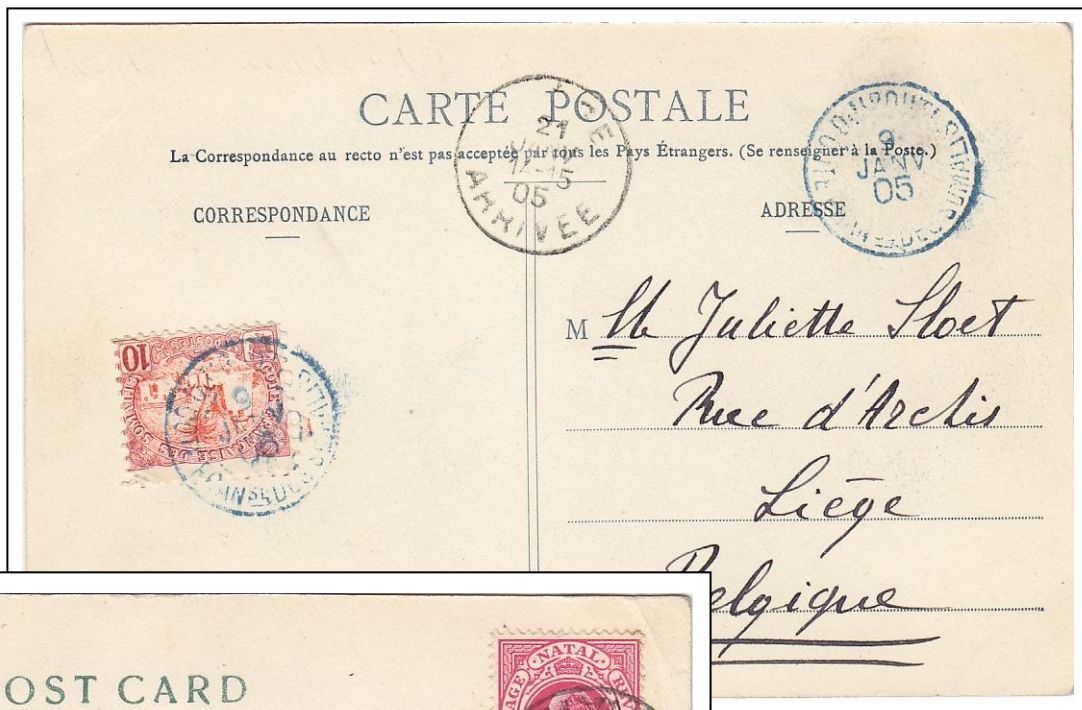 CARTE POSTALE
La Correspondance au recto n'est pas acceptée par tous les Pays Étrangers. (Se renseigner à la Poste.)
CORRESPONDANCE
ADRESSE
21
05
ARRIVEE
9
JANV
05
M Lle Juliette Sloet
Rue d'Archis
Liége
Belgique
10
POSTES
9
OST CARD
NATAL